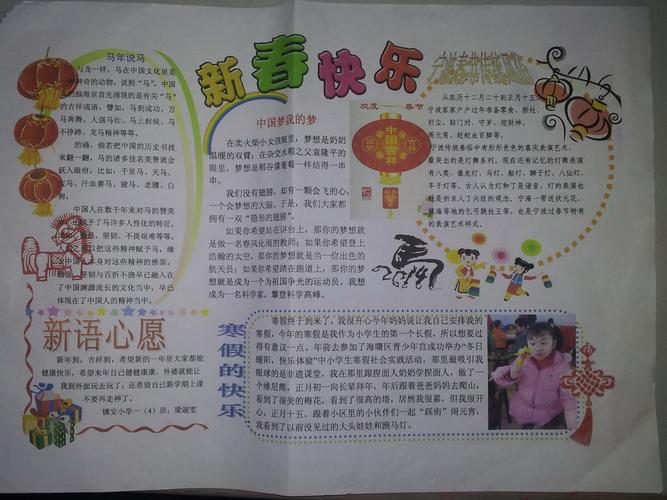 新春快乐
马年说马
与龙一样,马在中国文化里是
神奇的动物,说到“马”,中国
脑海里首先涌现的是有关“马”
的吉祥成语,譬如,马到成功、万
马奔腾、人强马壮、马上封侯、马
不停蹄、龙马精神等等。
的确,倘若把中国的历史书找
来翻一翻,马的诸多佳名美誉就会
跃入眼帘,比如:千里马、天马、
宝马、汗血善马、骏马、老骥、白
驹。
中国人在数千年来对马的赞美
了马许多人性化的特点,
坚韧、不畏艰难等等,
把这些精神赋予马,谁
中国人本身对这些精神的推崇。
坚韧与百折不挠早已融入在
了中国渊源流长的文化当中,早已
体现在了中国人的精神当中。
中国梦我的梦
在卖火柴小女孩眼里,梦想是奶奶
温暖的双臂;在杂交水稻之父袁隆平的
眼里,梦想是稻谷像葡萄一样结得一串
串。
我们没有翅膀,却有一颗会飞的心,
一个会梦想的大脑,于是,我们大家都
拥有一双“隐形的翅膀”。
如果你希望站在讲台上,那你的梦想就
是做一名春风化雨的教师;如果你希望登上
浩瀚的太空,那你的梦想就是当一位出色的
航天员;如果你希望踏在跑道上,那你的梦
想就是成为一个为祖国争光的运动员。我想
成为一名科学家,攀登科学高峰。
欢度 春节
中国吉祥
宁波春节传统习俗
从农历十二月二十到正月十五,
宁波家家户户过年准备零食、祭灶、
扫尘、贴门对、守岁、迎财神、
闹元宵、赶蛇虫百脚等。
宁波传统春俗中有形形色色的喜庆表演艺术。
最突出的是灯舞系列。现在还有记忆的灯舞表演
有八类,像龙灯、马灯、船灯、狮子灯、八仙灯、
车子灯等。古人认为灯和丁是谐音。灯的表演也
就是祈求人丁兴旺的观念。宁海一带送状元花,
镇海等地的乞丐跳灶王等,也是宁波过春节特有
的表演艺术样式。
马
新语心愿
新年到,吉祥到,希望新的一年里大家都能
健康快乐,希望来年自己健健康康,外婆就能让
我到外面玩去玩了;还希望自己新学期上课
不要再走神了。
镇安小学一(4)班:梁淑雯
寒假的快乐
寒假终于到来了,我很开心今年妈妈说让我自己安排我的
寒假,今年的寒假是我作为小学生的第一个长假,所以想要过
得有意义一点。年前去参加了海曙区青少年宫成功举办“冬日
暖阳,快乐体验”中小学生寒假社会实践活动,那里最吸引我
眼球的是非遗课堂,我在那里跟捏面人奶奶学捏面人,做了一
个维尼熊。正月初一向长辈拜年,年后跟着爸爸妈妈去爬山,
看到了很美的梅花,看到了很高的塔,居然我很累,但我很开
心。正月十五,跟着小区里的小伙伴们一起“踩街”闹元宵,
我看到了以前没见过的大头娃娃和跑马灯。